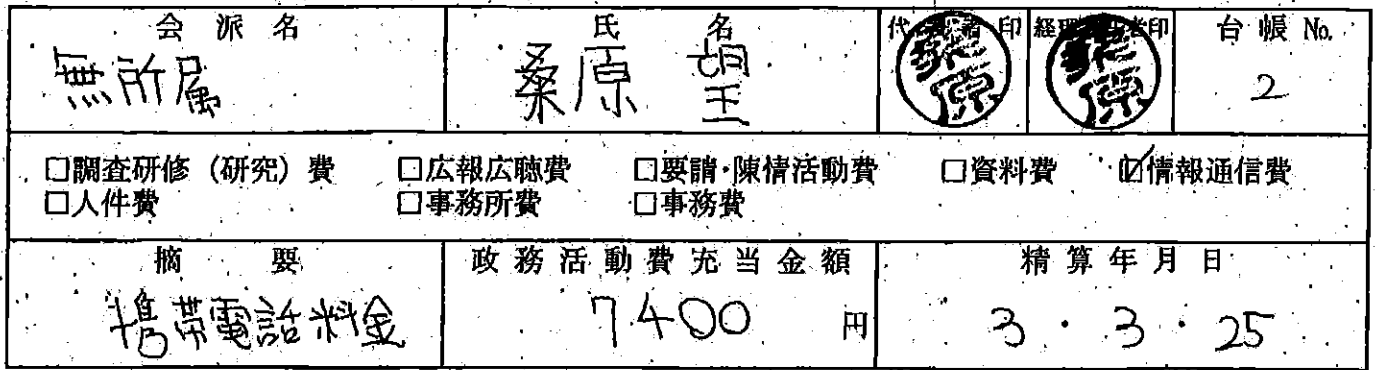 会派名 氏名 代表者印 経理責任者印 台帳 No.
無所属 桑原 望 桑原 桑原 2
□調査研修（研究）費 □広報広聴費 □要請・陳情活動費 □資料費 ☑情報通信費
□人件費 □事務所費 □事務費
摘要 政務活動費充当金額 精算年月日
携帯電話料金 7400 円 3・3・25